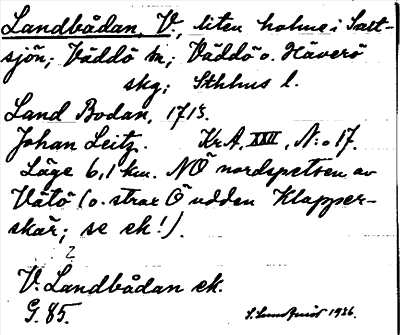 Landbådan, V, liten holme i Sart-
sjön; Väddö sn; Väddö o. Häverö
skg; Sthlms l.
Land Bodan, 1713.
Johan Leitz. Kr.A. XXII, N:o 17.
Läge 6,1 km. NÖ nordspetsen av
Vätö (o. strax Ö udden Klapper-
skär; se ek!).
?
V. Landbådan ek.
G. 85.
1936.